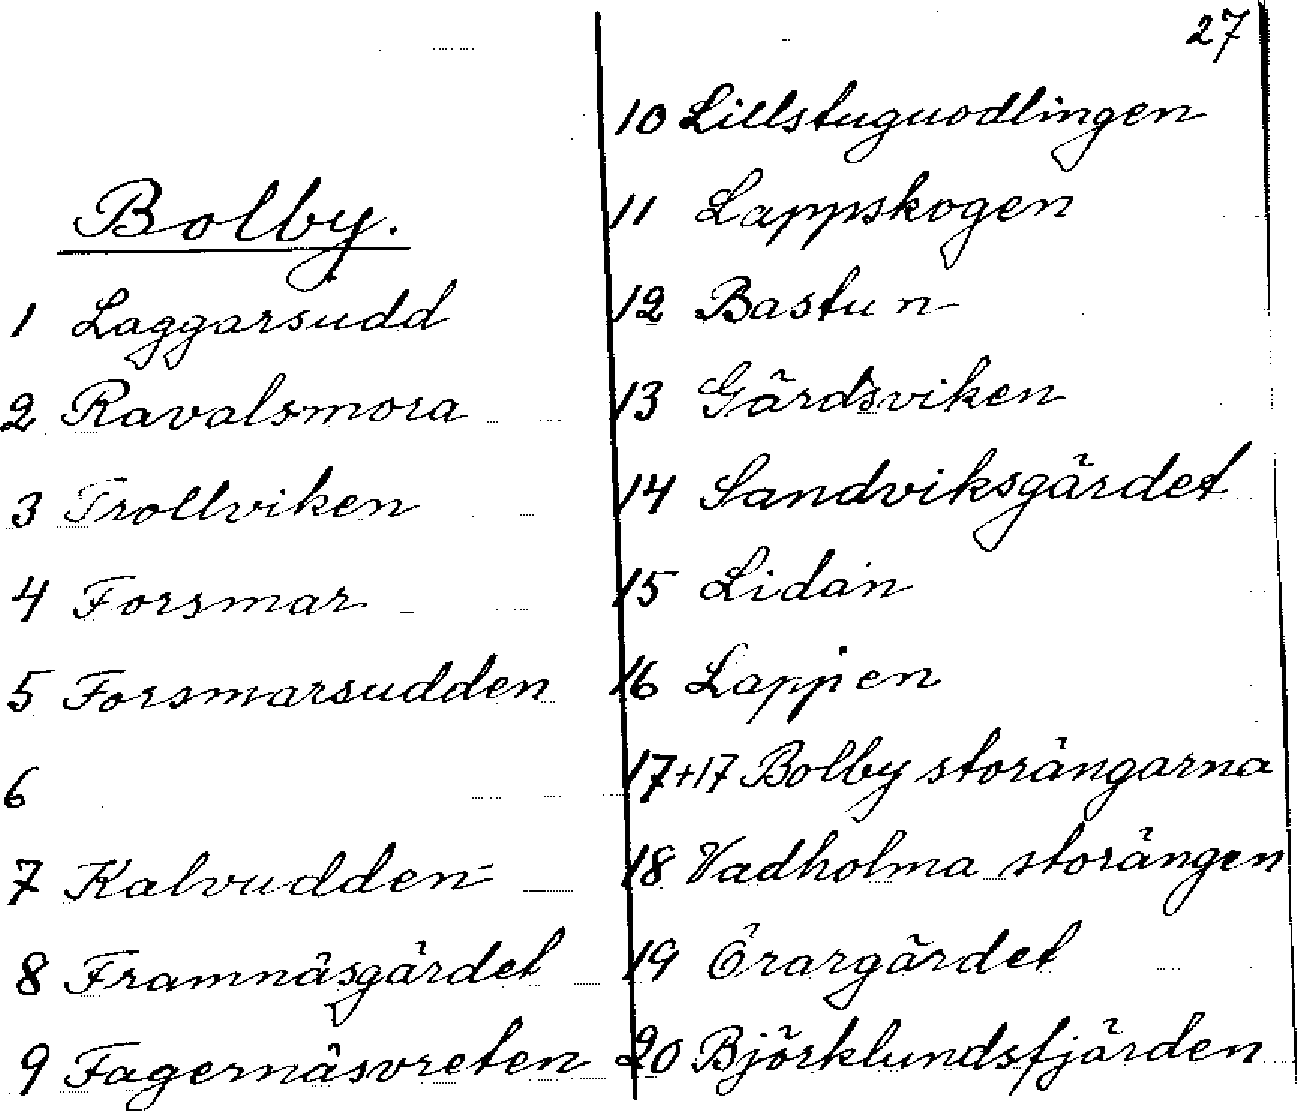 27
Bolby.
1 Laggarsudd
2 Ravalsmora
3 Trollviken
4 Forsmar
5 Forsmarsudden
6
7 Kalvudden
8 Framnäsgärdet
9 Fagernäsvreten
10 Lillstuguodlingen
11 Lappskogen
12 Bastun
13 Gärdsviken
14 Sandviksgärdet
15 Lidan
16 Lappjen
17+17 Bolby storängarna
18 Vadholma storängen
19 Örargärdet
20 Björklundsfjärden